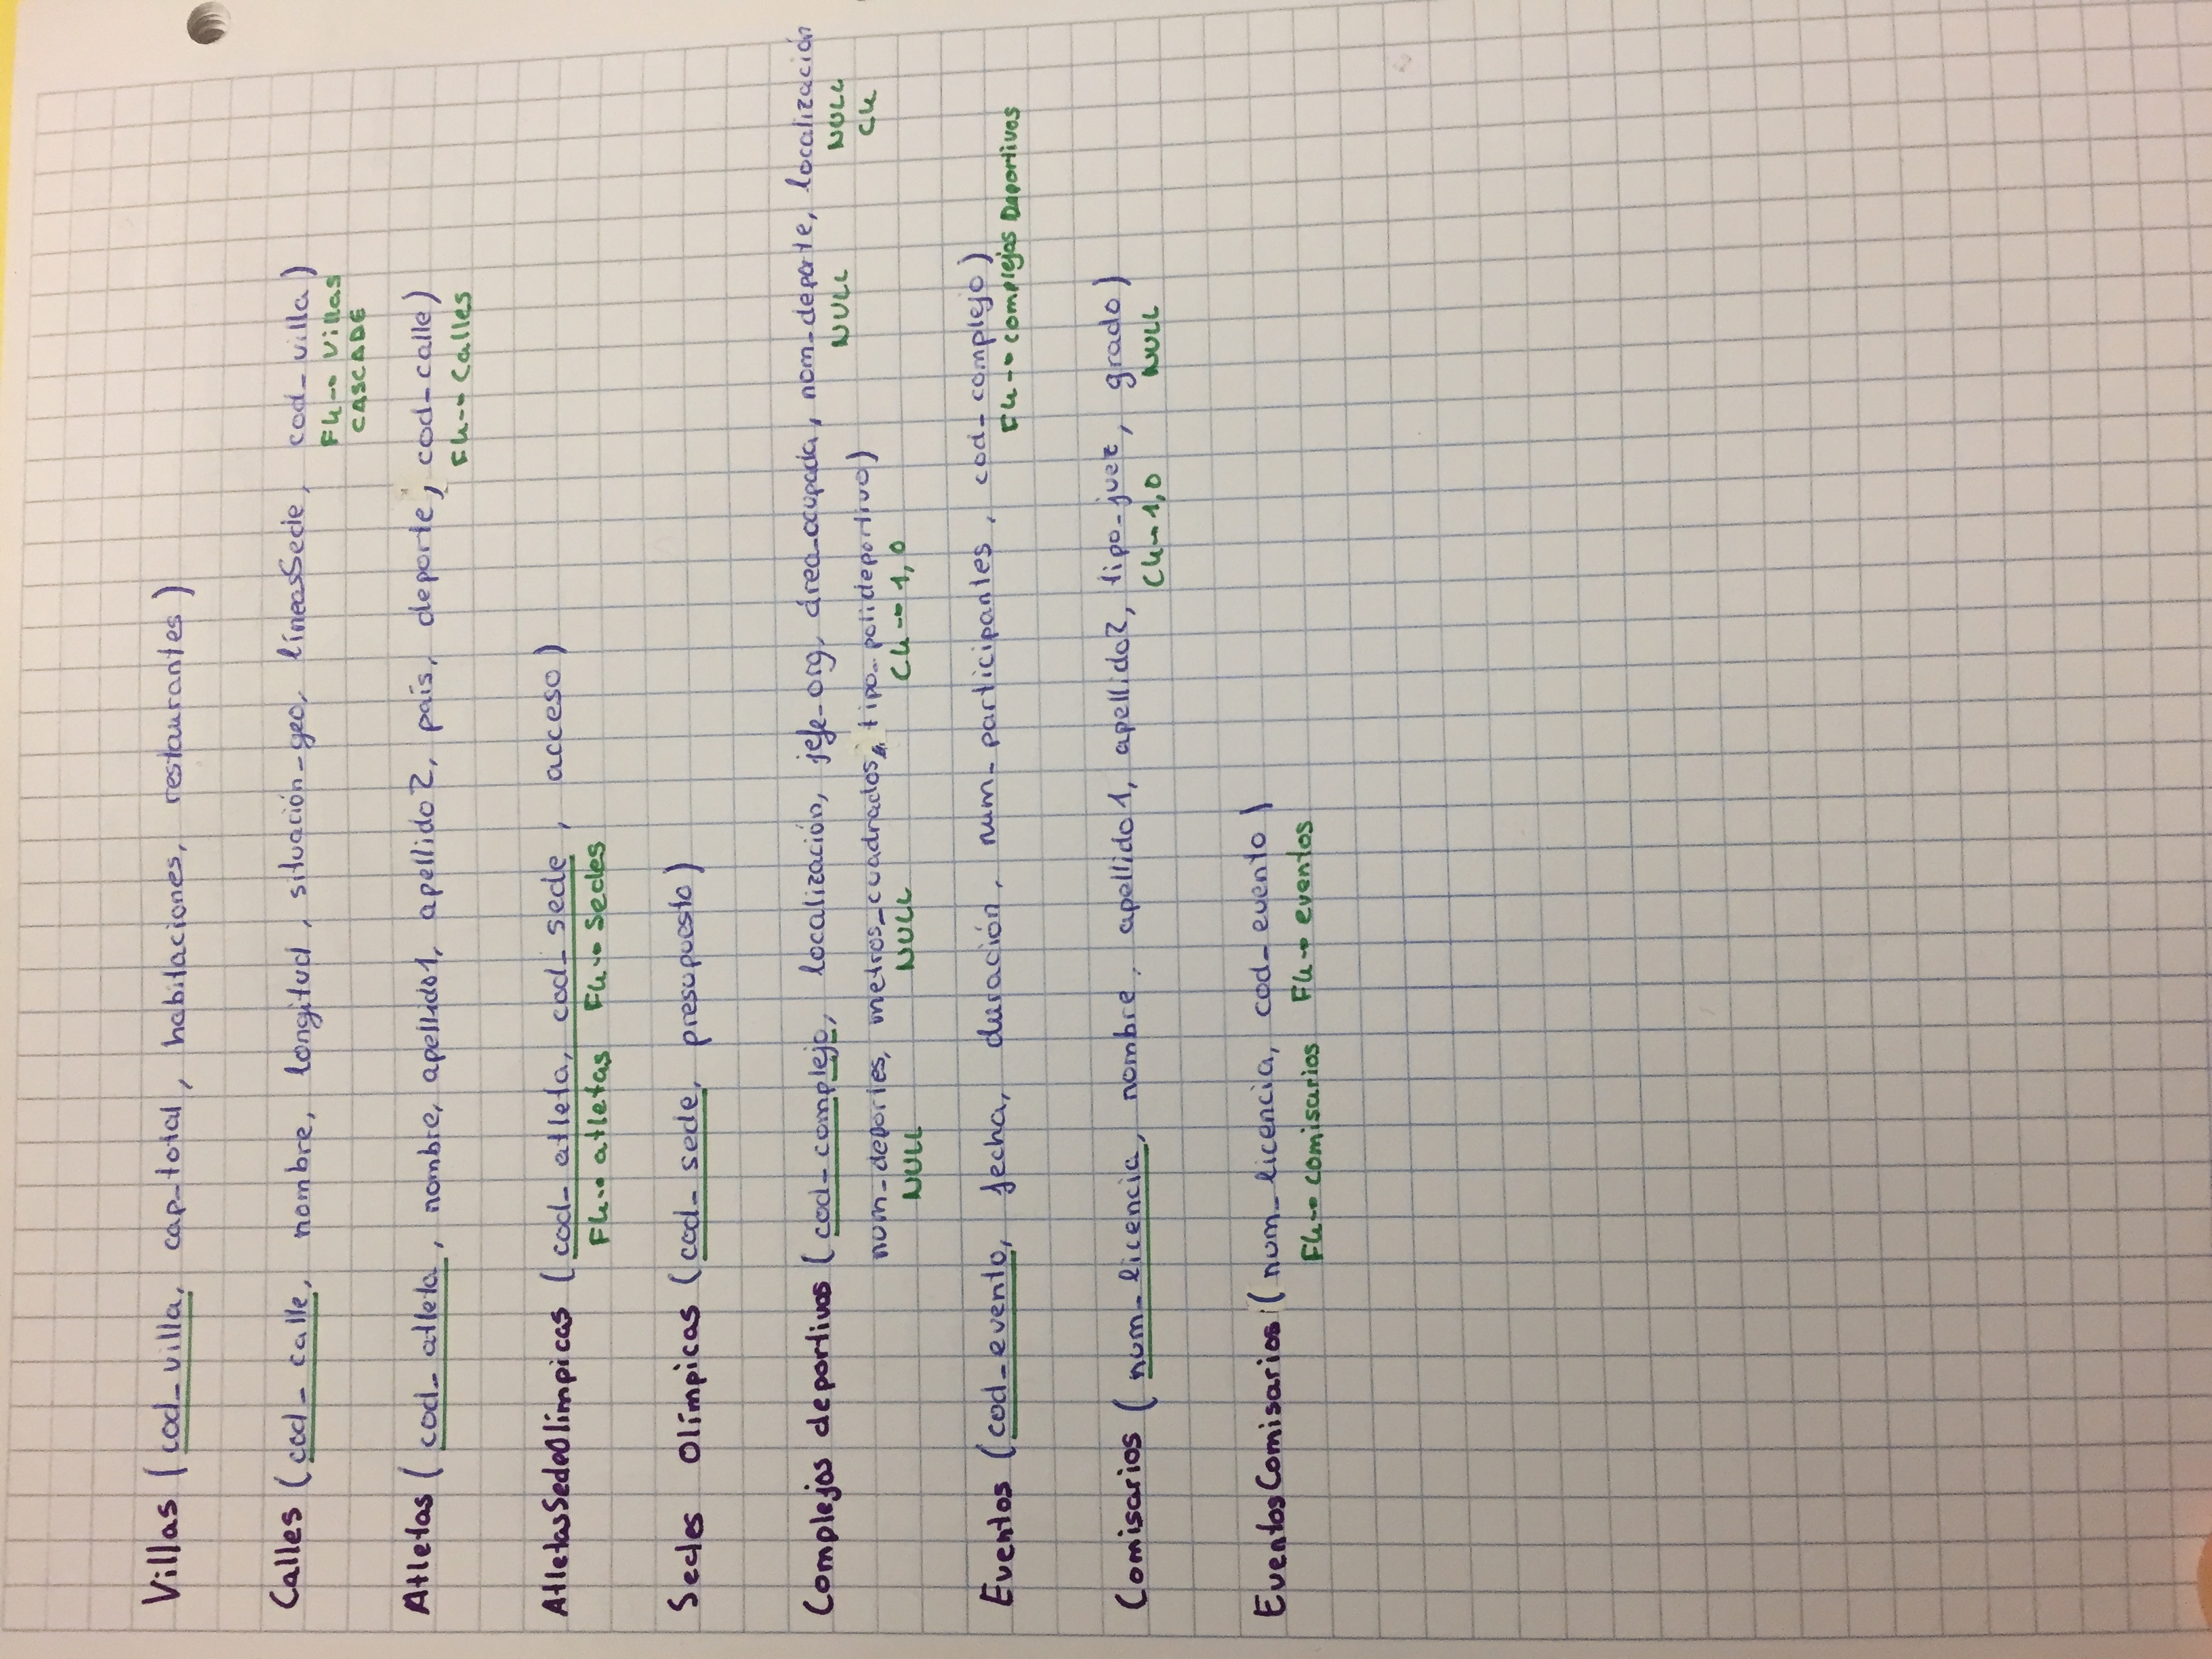 Villas (cod_villa, cap_total, habitaciones, restaurantes)
Calles (cod_calle, nombre, longitud, situación_geo, líneasSede, cod_villa)
Fk→ Villas
CASCADE
Atletas (cod_atleta, nombre, apellido1, apellido2, país, deporte, cod_calle)
Fk→ Calles
AtletasSedeOlímpicas (cod_atleta, cod_sede, acceso)
Fk→ atletas Fk→ Sedes
Sedes Olímpicas (cod_sede, presupuesto)
Complejos deportivos (cod_complejo, localización, jefe_org, área_ocupada, nom_deporte, localización
NULL NULL
CK
num_deportes, metros_cuadrados, tipo_polideportivo)
NULL NULL Ck→ 1,0
Eventos (cod_evento, fecha, duración, num_participantes, cod_complejo)
Fk→ complejos Deportivos
Comisarios (num_licencia, nombre, apellido1, apellido2, tipo_juez, grado)
Ck→ 1,0 NULL
EventosComisarios (num_licencia, cod_evento)
Fk→ comisarios Fk→ eventos